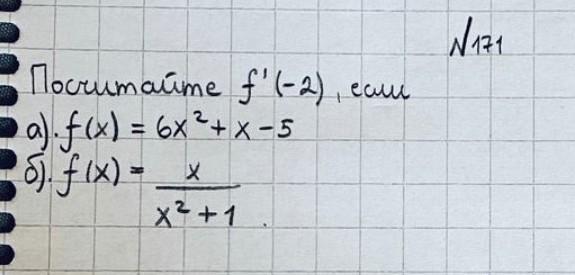 №171
Посчитайте f'(-2), если
а). f(x) = 6x² + x - 5
б). f(x) = x / (x² + 1) .